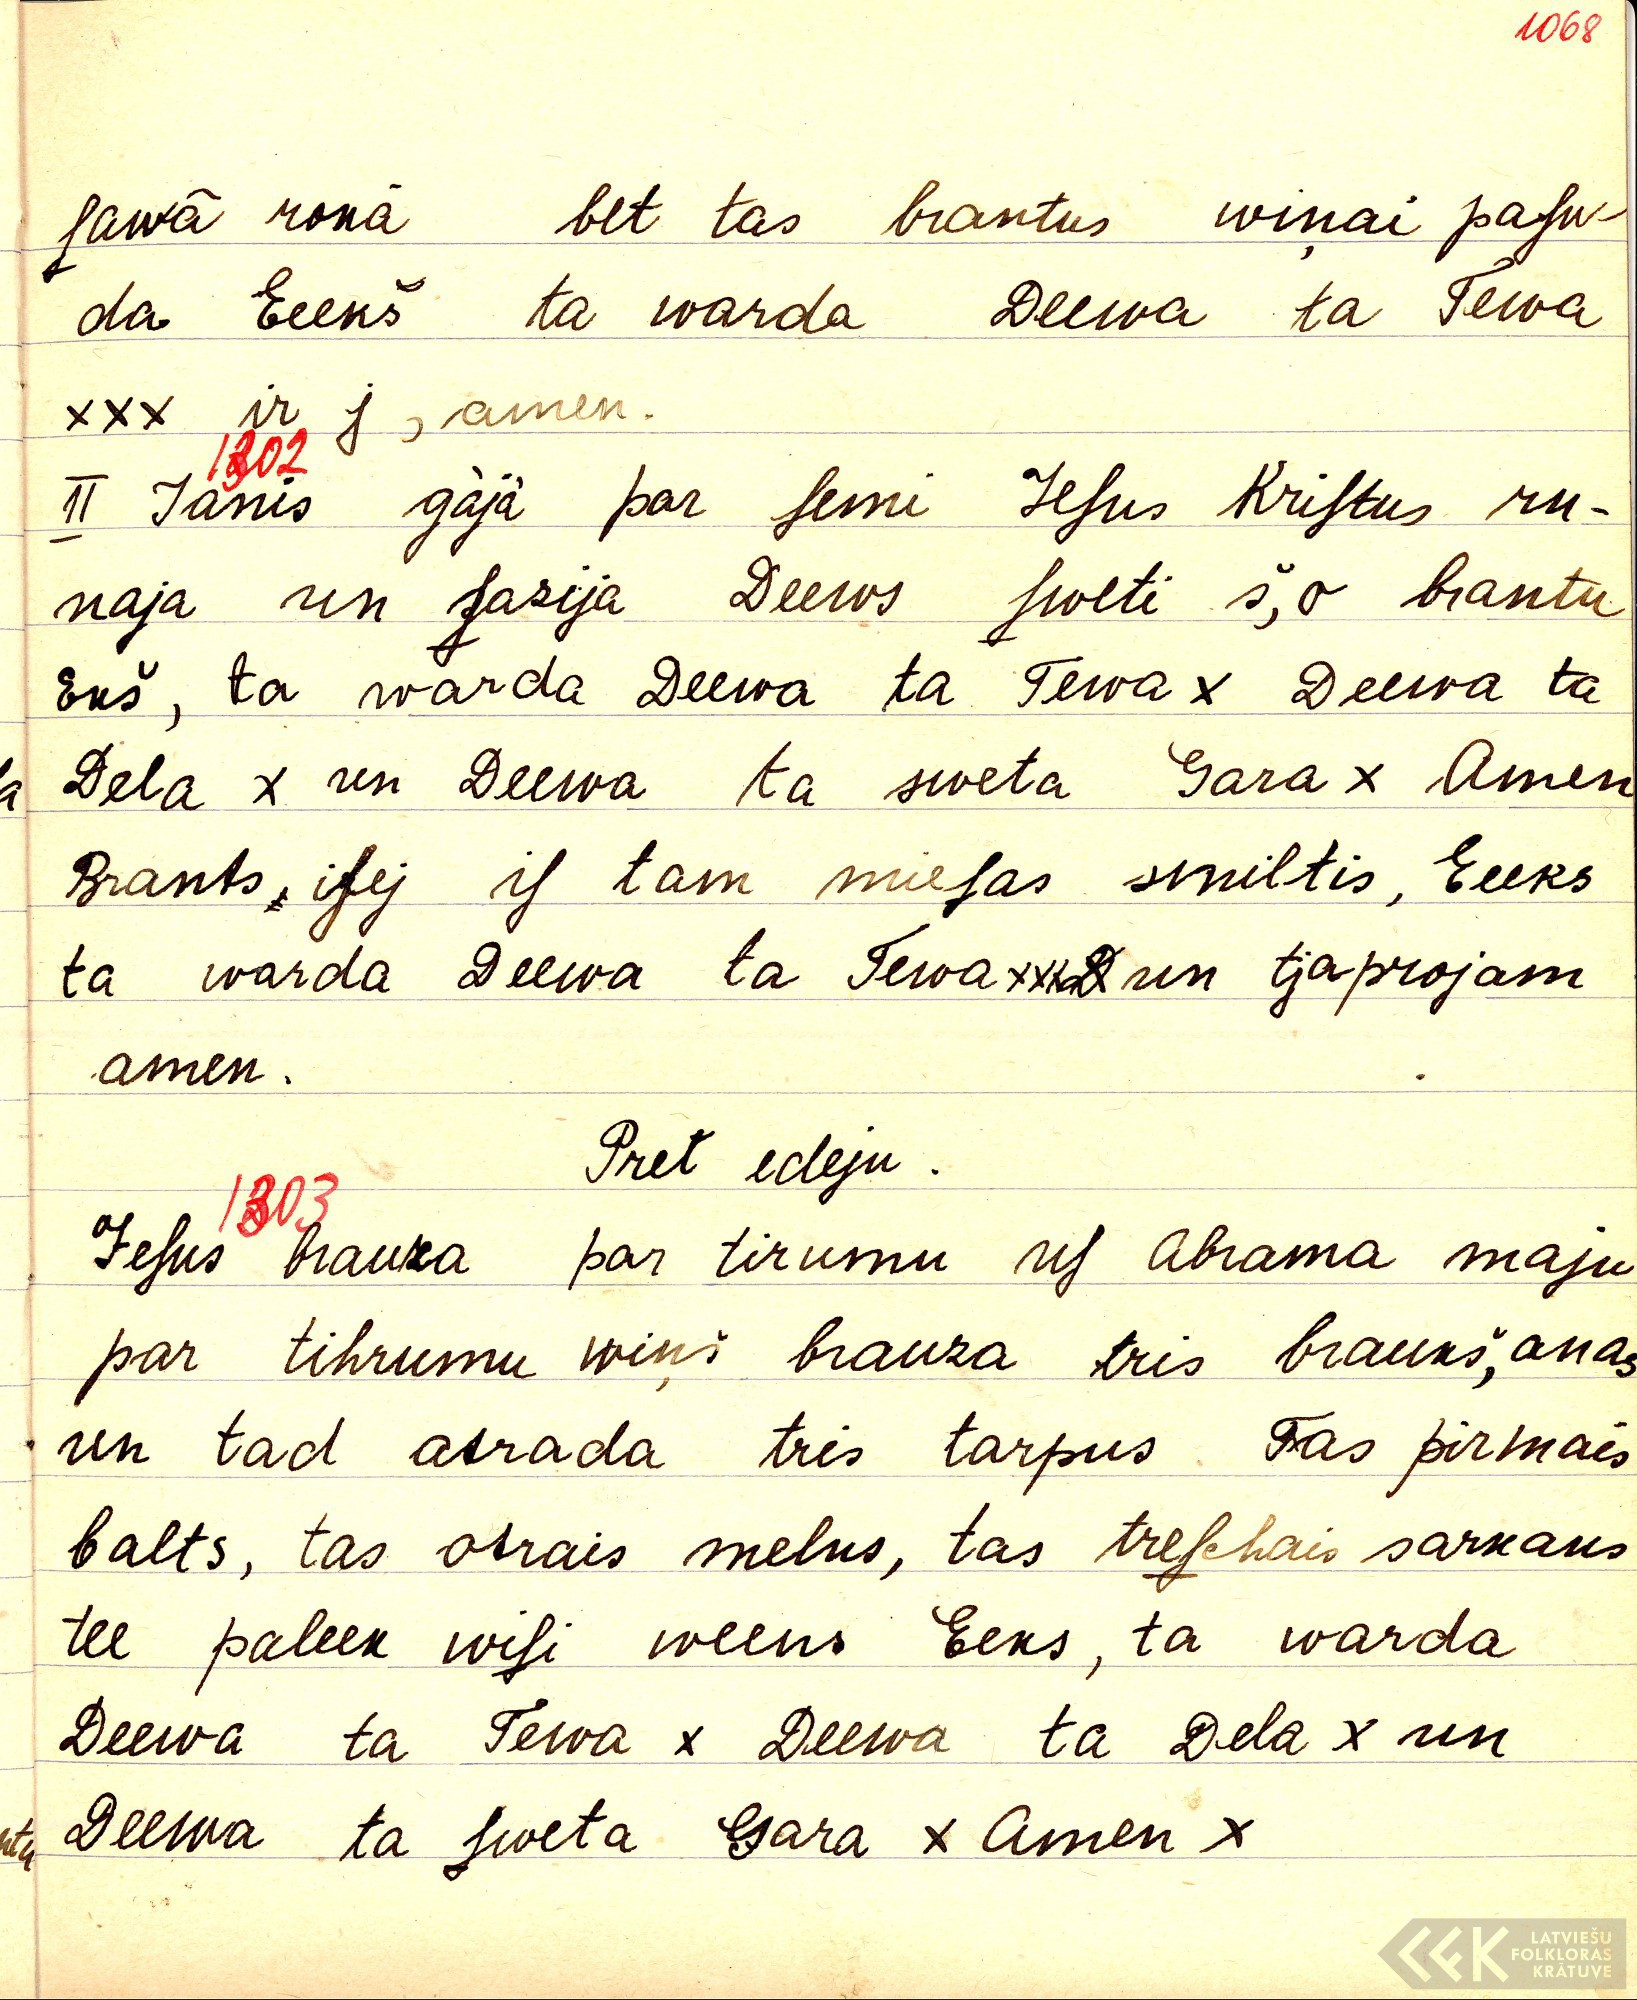 1068
ſawā rokā bet tas brantus wiņai paſu-
da Eeekš ta warda Deewa ta Tewa
xxx ir j, amen.
1302
II Janis gàjà par ſemi Jeſus Kriſtus ru-
naja un ſazija Deews ſweti š,o brantu
Ekš, ta wārda Deewa ta Tewa x Deewa ta
Dela x un Deewa ta sweta Gara x Amen
Brants, iſej iſ tam mieſas smiltis, Eeeks
ta warda Deewa ta Tewa xxx un tjaprojam
amen.
Pret edeju.
1303
Jeſus brauza par tirumu uſ Abrama maju
par tihrumu wiņš brauza tris braukš,anas
un tad atrada tris tarpus Tas pirmais
balts, tas otrais melns, tas treſchais sarkans
tee paleek wiſi weens Eeks, ta warda
Deewa ta Tewa x Deewa ta Dela x un
Deewa ta ſweta Gara x Amen x
LATVIEŠU
FOLKLORAS
KRĀTUVE